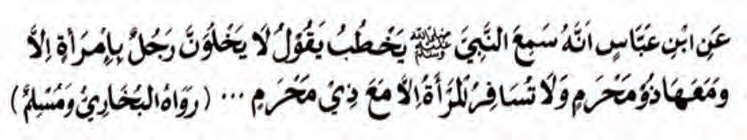 عَنِ ابْنِ عَبَّاسٍ اَنَّهُ سَمِعَ النَّبِيَّ ﷺ يَخْطُبُ يَقُوْلُ لَا يَخْلُوَنَّ رَجُلٌ بِاِمْرَأَةٍ اِلَّا
وَمَعَهَا ذُوْ مَحْرَمٍ وَلَا تُسَافِرُ لْمَرْأَةُ اِلَّا مَعَ ذِيْ مَحْرَمٍ ... (رَوَاهُ الْبُخَارِيُ وَمُسْلِمٌ)